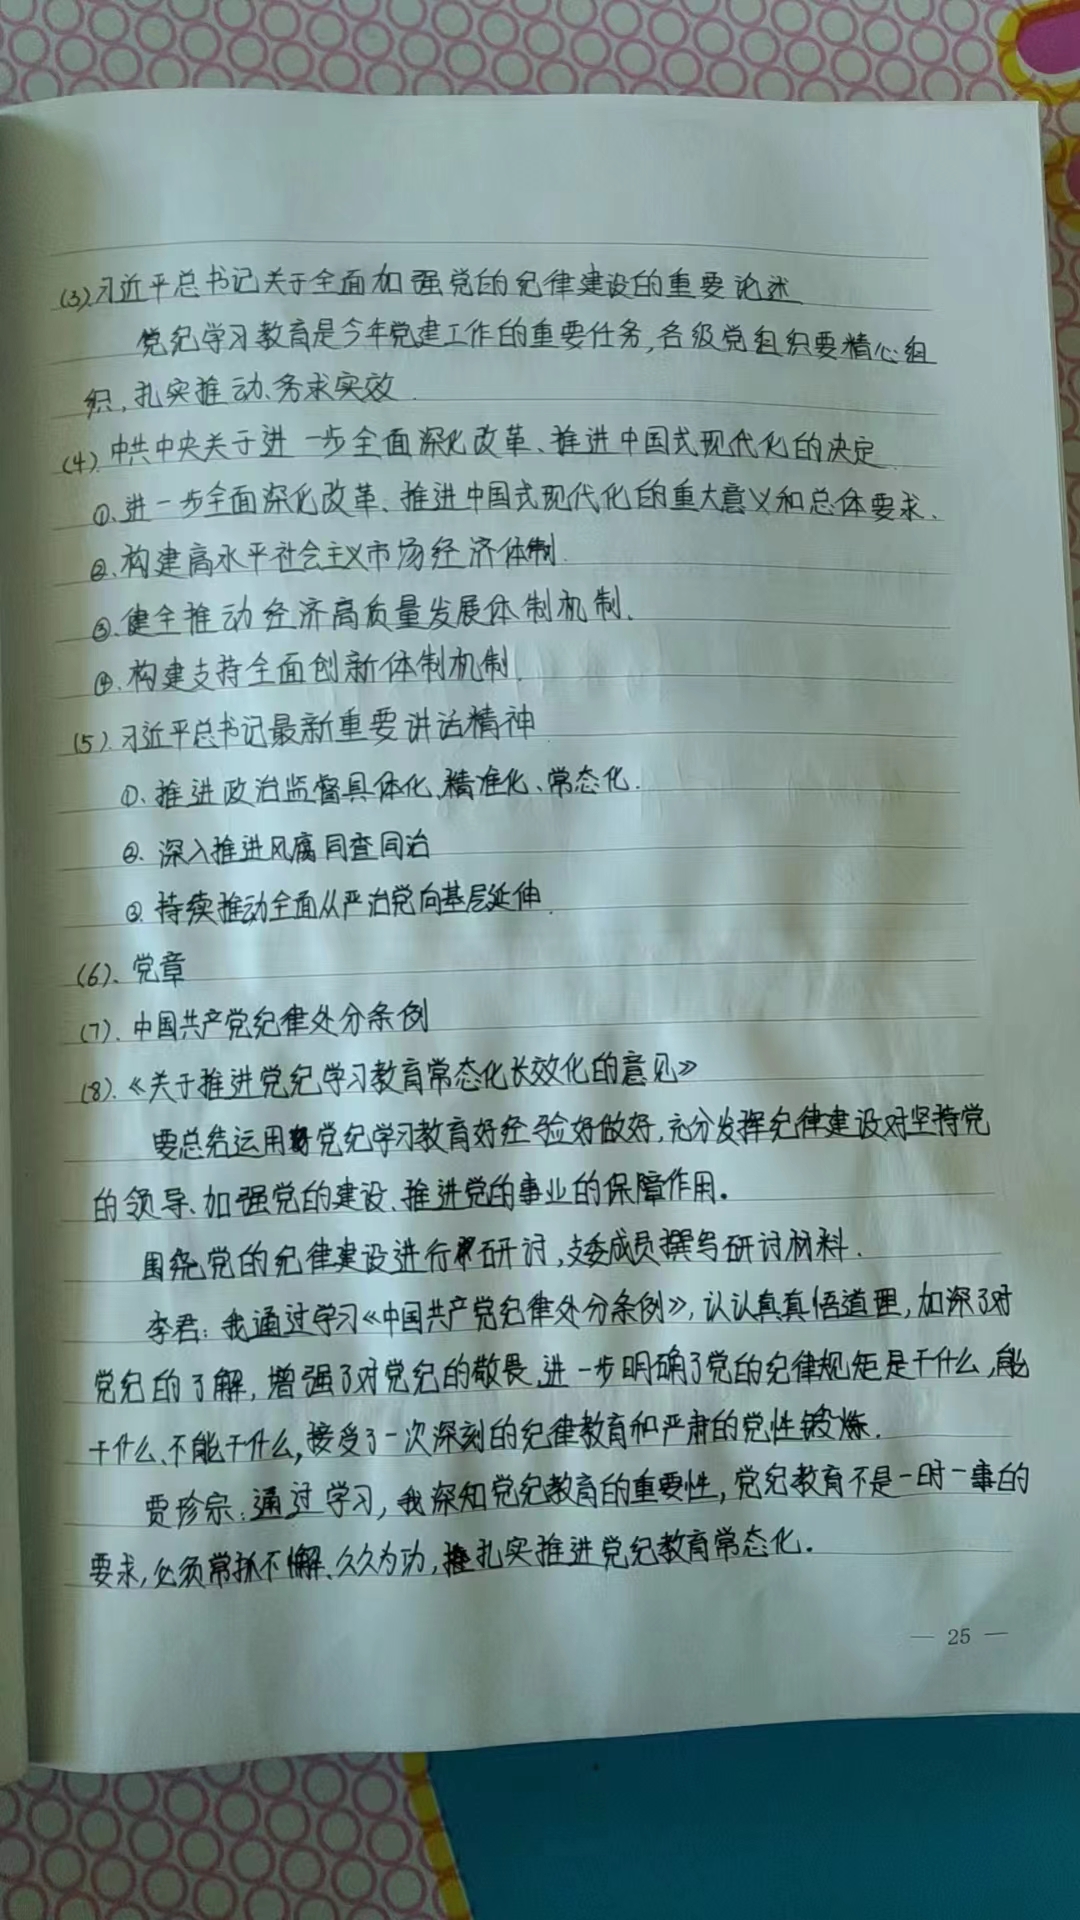 (3).习近平总书记关于全面加强党的纪律建设的重要论述
党纪学习教育是今年党建工作的重要任务,各级党组织要精心组
织,扎实推动、务求实效.
(4).中共中央关于进一步全面深化改革、推进中国式现代化的决定.
①.进一步全面深化改革、推进中国式现代化的重大意义和总体要求.
②.构建高水平社会主义市场经济体制.
③.健全推动经济高质量发展体制机制.
④.构建支持全面创新体制机制.
(5).习近平总书记最新重要讲话精神
①.推进政治监督具体化、精准化、常态化.
②.深入推进风腐同查同治
③.持续推动全面从严治党向基层延伸.
(6).党章
(7).中国共产党纪律处分条例
(8).《关于推进党纪学习教育常态化长效化的意见》
要总结运用党纪学习教育好经验好做好,充分发挥纪律建设对坚持党
的领导、加强党的建设、推进党的事业的保障作用。
围绕党的纪律建设进行研讨,支委成员撰写研讨材料.
李君:我通过学习《中国共产党纪律处分条例》,认认真真悟道理,加深了对
党纪的了解,增强了对党纪的敬畏,进一步明确了党的纪律规矩是干什么,能
干什么、不能干什么,接受了一次深刻的纪律教育和严肃的党性锻炼.
贾珍宗:通过学习,我深知党纪教育的重要性,党纪教育不是一时一事的
要求,必须常抓不懈、久久为功,扎实推进党纪教育常态化.
— 25 —